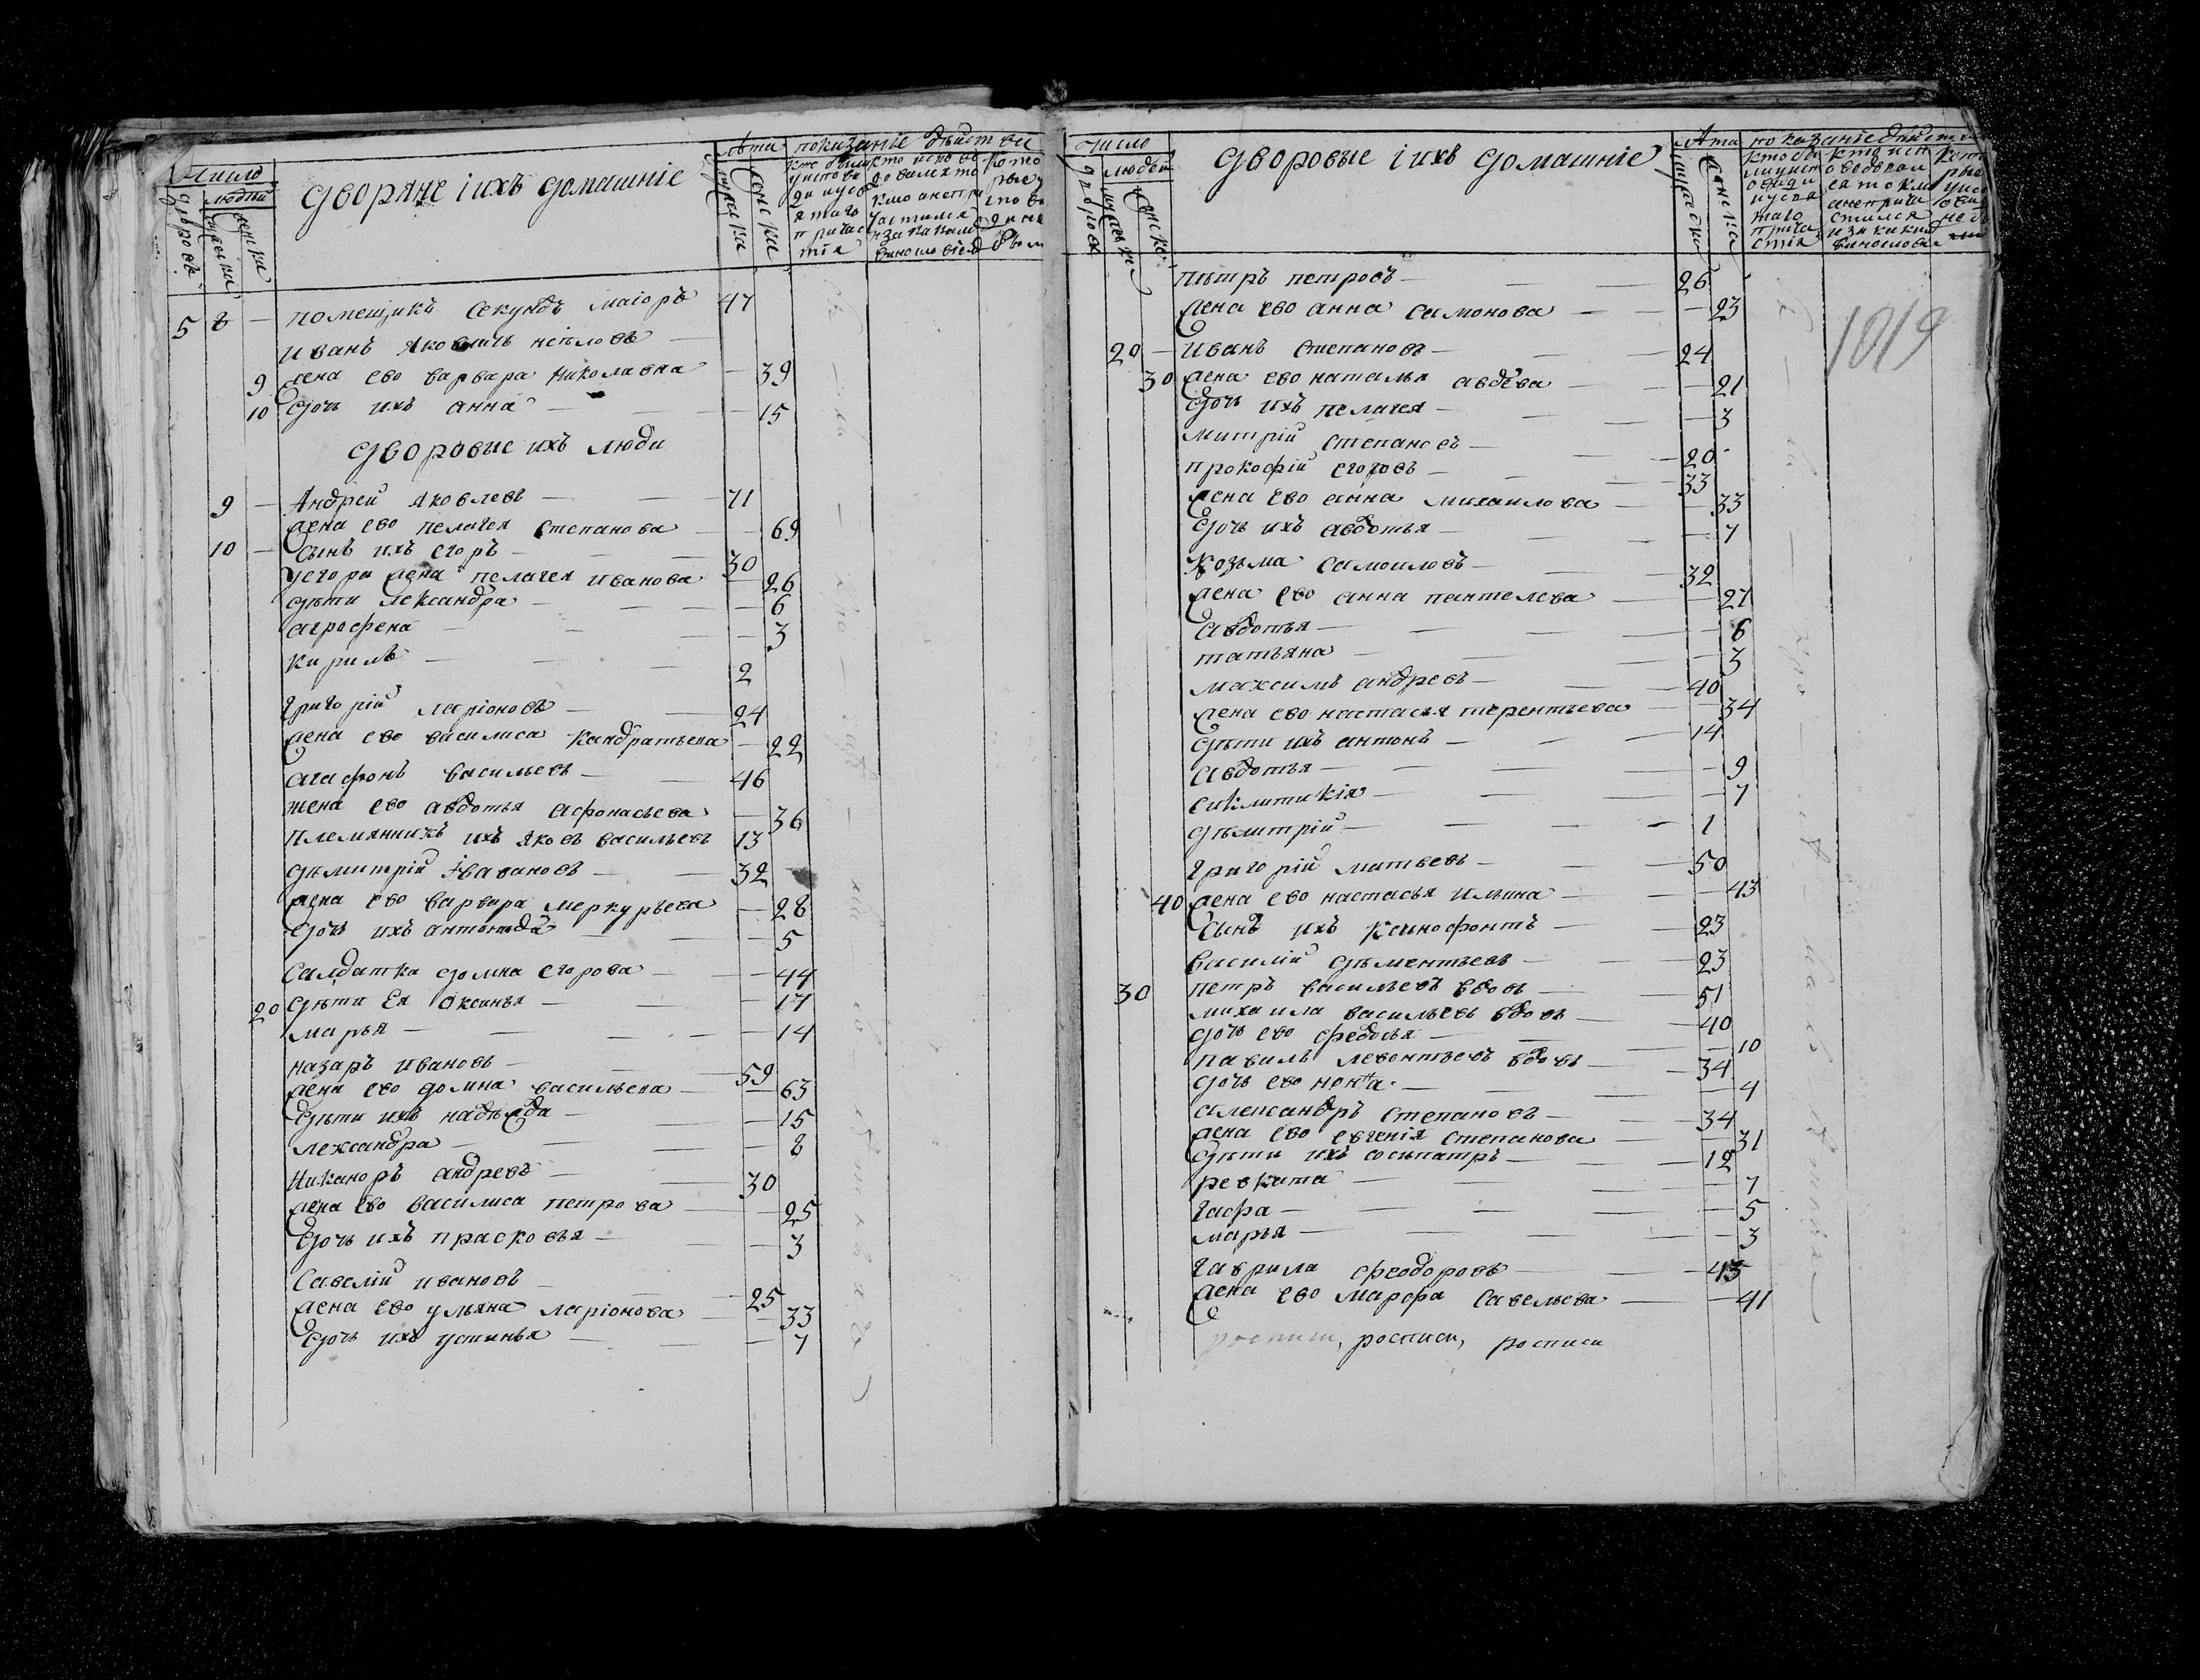 Число
людей
дворовъ
мужеска
женска
Дворяне іихъ домашніе
Лѣта
мужеска
женска
показаніе дѣйстви
5 8 — помещикъ секундъ маіоръ 47
Иванъ Яковличъ неѣловъ —
9 жена ево варвара николавна — 39
10 дочь ихъ анна — 15
Дворовые ихъ люди
9 — Андрей яковлевъ — 71
жена ево пелагея степанова — 69
10 — Сынъ ихъ егоръ — 30
Уегора жена пелагея иванова — 26
дѣти лександра — 6
агрофена — 3
кирилъ — 2
григорій ларіоновъ — 24
жена ево василиса кандратьева — 22
агафонъ васильевъ — 46
жена ево авдотья афонасьева — 36
племянникъ ихъ яковъ васильевъ 13
дѣмитрій — 32
жена ево варвара меркурьева — 28
дочь ихъ антонида — 5
Салдатка домна егорова — 44
20 дѣти Ея Оксинья — 17
марья — 14
назаръ ивановъ — 59
жена ево домна васильева — 63
дѣти ихъ надежда — 15
лександра — 8
никаноръ андревъ — 30
жена ево василиса петрова — 25
дочь ихъ прасковья — 3
Савелій ивановъ — 25
жена ево ульяна ларіонова — 33
дочь ихъ устинья — 7
число
людей
дворовъ
мужеска
женска
Дворовые іихъ домашніе
Лѣта
мужеска
женска
показаніе дѣйст
1819
пѣтръ петровъ — 26
жена ево анна самонова — 23
20 — Иванъ степановъ — 24
30 жена ево наталья авдѣва — 21
дочь ихъ пелагея — 3
митрій степановъ — 20
прокофій егоровъ — 33
жена ево анна михаилова — 33
дочь ихъ авдотья — 7
козьма самоиловъ — 32
жена ево анна пантелева — 27
авдотья — 6
татьяна — 3
максимъ андревъ — 40
жена ево настасья терентьева — 34
дѣти ихъ антонъ — 14
авдотья — 9
сиклитикія — 7
дѣмитрій — 1
григорій матьвевъ — 50
40 жена ево настасья ильина — 43
Сынъ ихъ ксинофонтъ — 23
василій дѣментьевъ — 23
30 петръ васильевъ вдовъ — 51
михаила васильевъ вдовъ — 40
дочь ево федосья — 10
павилъ левонтьевъ вдовъ — 34
дочь ево — 4
александръ степановъ — 34
жена ево евгенія степанова — 31
дѣти ихъ сосипатръ — 12
ревкита — 7
гафа — 5
марья — 3
гаврила феодоровъ — 43
жена ево марфа савельева — 41
росписи, росписи, росписи